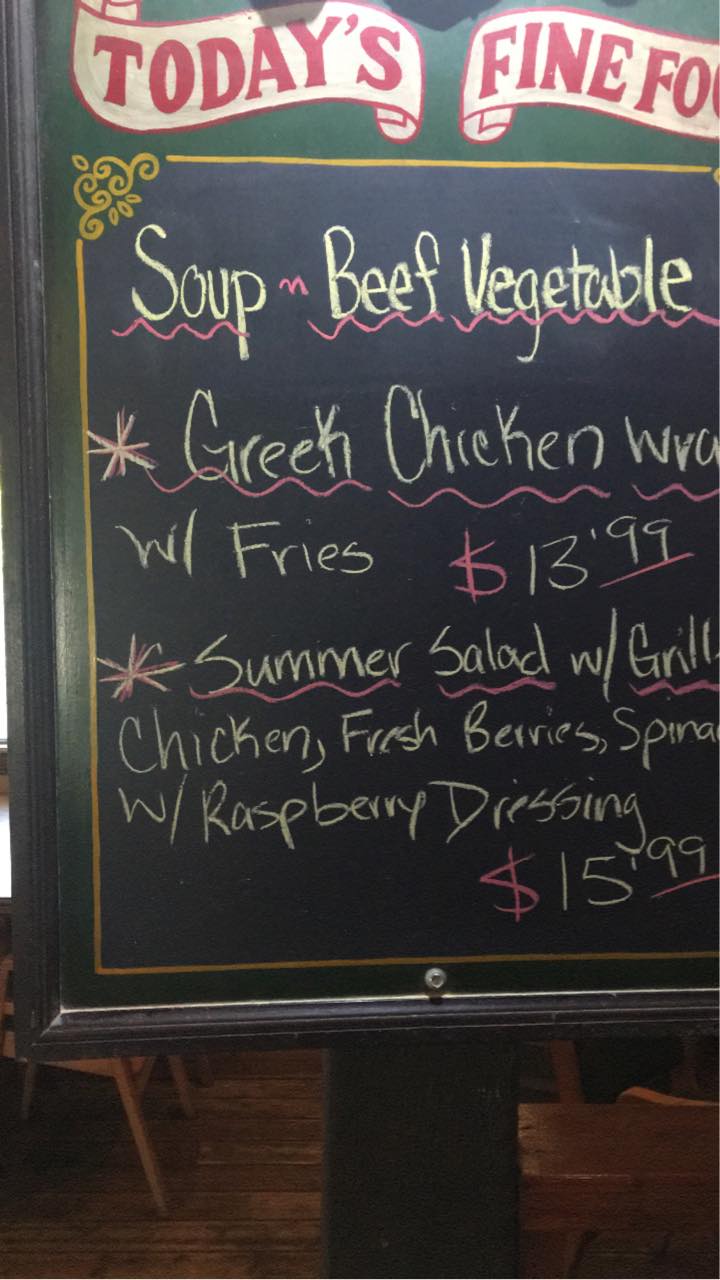 TODAY'S FINE FOO
Soup ~ Beef Vegetable
* Greek Chicken Wra
w/ Fries $13.99
* Summer Salad w/ Grill
Chicken, Fresh Berries, Spina
w/ Raspberry Dressing
$15.99